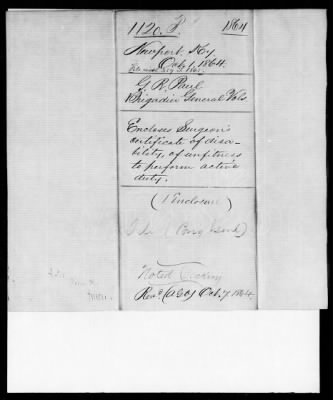 1120. P. 1864
Newport, Ky
Oct. 1, 1864.
G. R. Paul
Brigadier General Vols.
Encloses Surgeon's
certificate of disa-
bility, of unfitness
to perform active
duty.
(1 Enclosure)
Noted
Recd (AGO) Oct. 7, 1864.